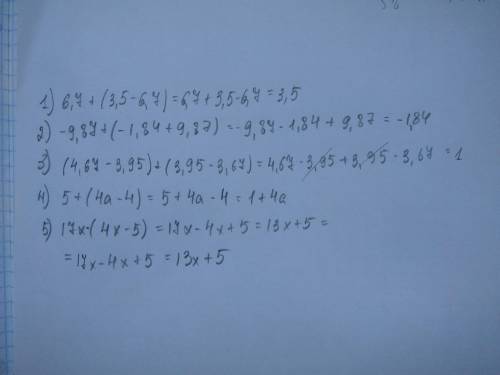 1) 6,7 + (3,5 - 6,7) = 6,7 + 3,5 - 6,7 = 3,5
2) -9,87 + (-1,84 + 9,87) = -9,87 - 1,84 + 9,87 = -1,84
3) (4,67 - 3,95) + (3,95 - 3,67) = 4,67 - 3,95 + 3,95 - 3,67 = 1
4) 5 + (4a - 4) = 5 + 4a - 4 = 1 + 4a
5) 17x - (4x - 5) = 17x - 4x + 5 = 13x + 5 =
= 17x - 4x + 5 = 13x + 5